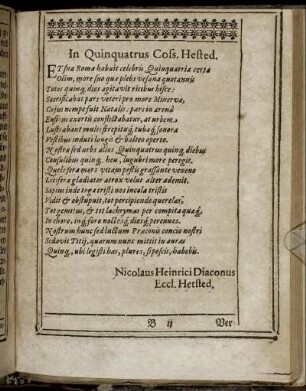 In Quinquatrus Coss. Hetsted.
ET sua Romæ habuit celebris Quinquatria certa
Olim, more suo quæ plebs vesana quotannis
Totos quinq; dies agitavit ritibus hisce:
Sacrificabat pars veteri pro more Minervæ,
Cujus nempe fuit Natalis: pars in arenâ
Ensibus exertis conflictabatur, at urbem
Lustrabant multi strepituq; tubaq; sonora
Vestibus induti longis & baltea gerto.
Nostra sed urbs alios Quinquatrus quinq; diebus
Consulibus quinq; heu, lugubri more peregit,
Queis fera mors vitam pestis grassante veneno
Letifero gladiator atrox velut alter ademit.
Sæpius inde togâ tristi nos incula tristis
Vidit & obstupuit, tot percipiendo querelas,
Tot gemitus, & tot lachrymas per compita quæq;
In choro, inq; foro noctesq; diesq; perennes.
Nostrum hunc sed luctum Præconis concio nostri
Sedavit Titij, quarum nunc mittit in auras
Quinq, ubi legisti has, plures, si poscis, habebis.
Nicolaus Heinrici Diaconus
Eccl. Hetsted.
B ij
Ver